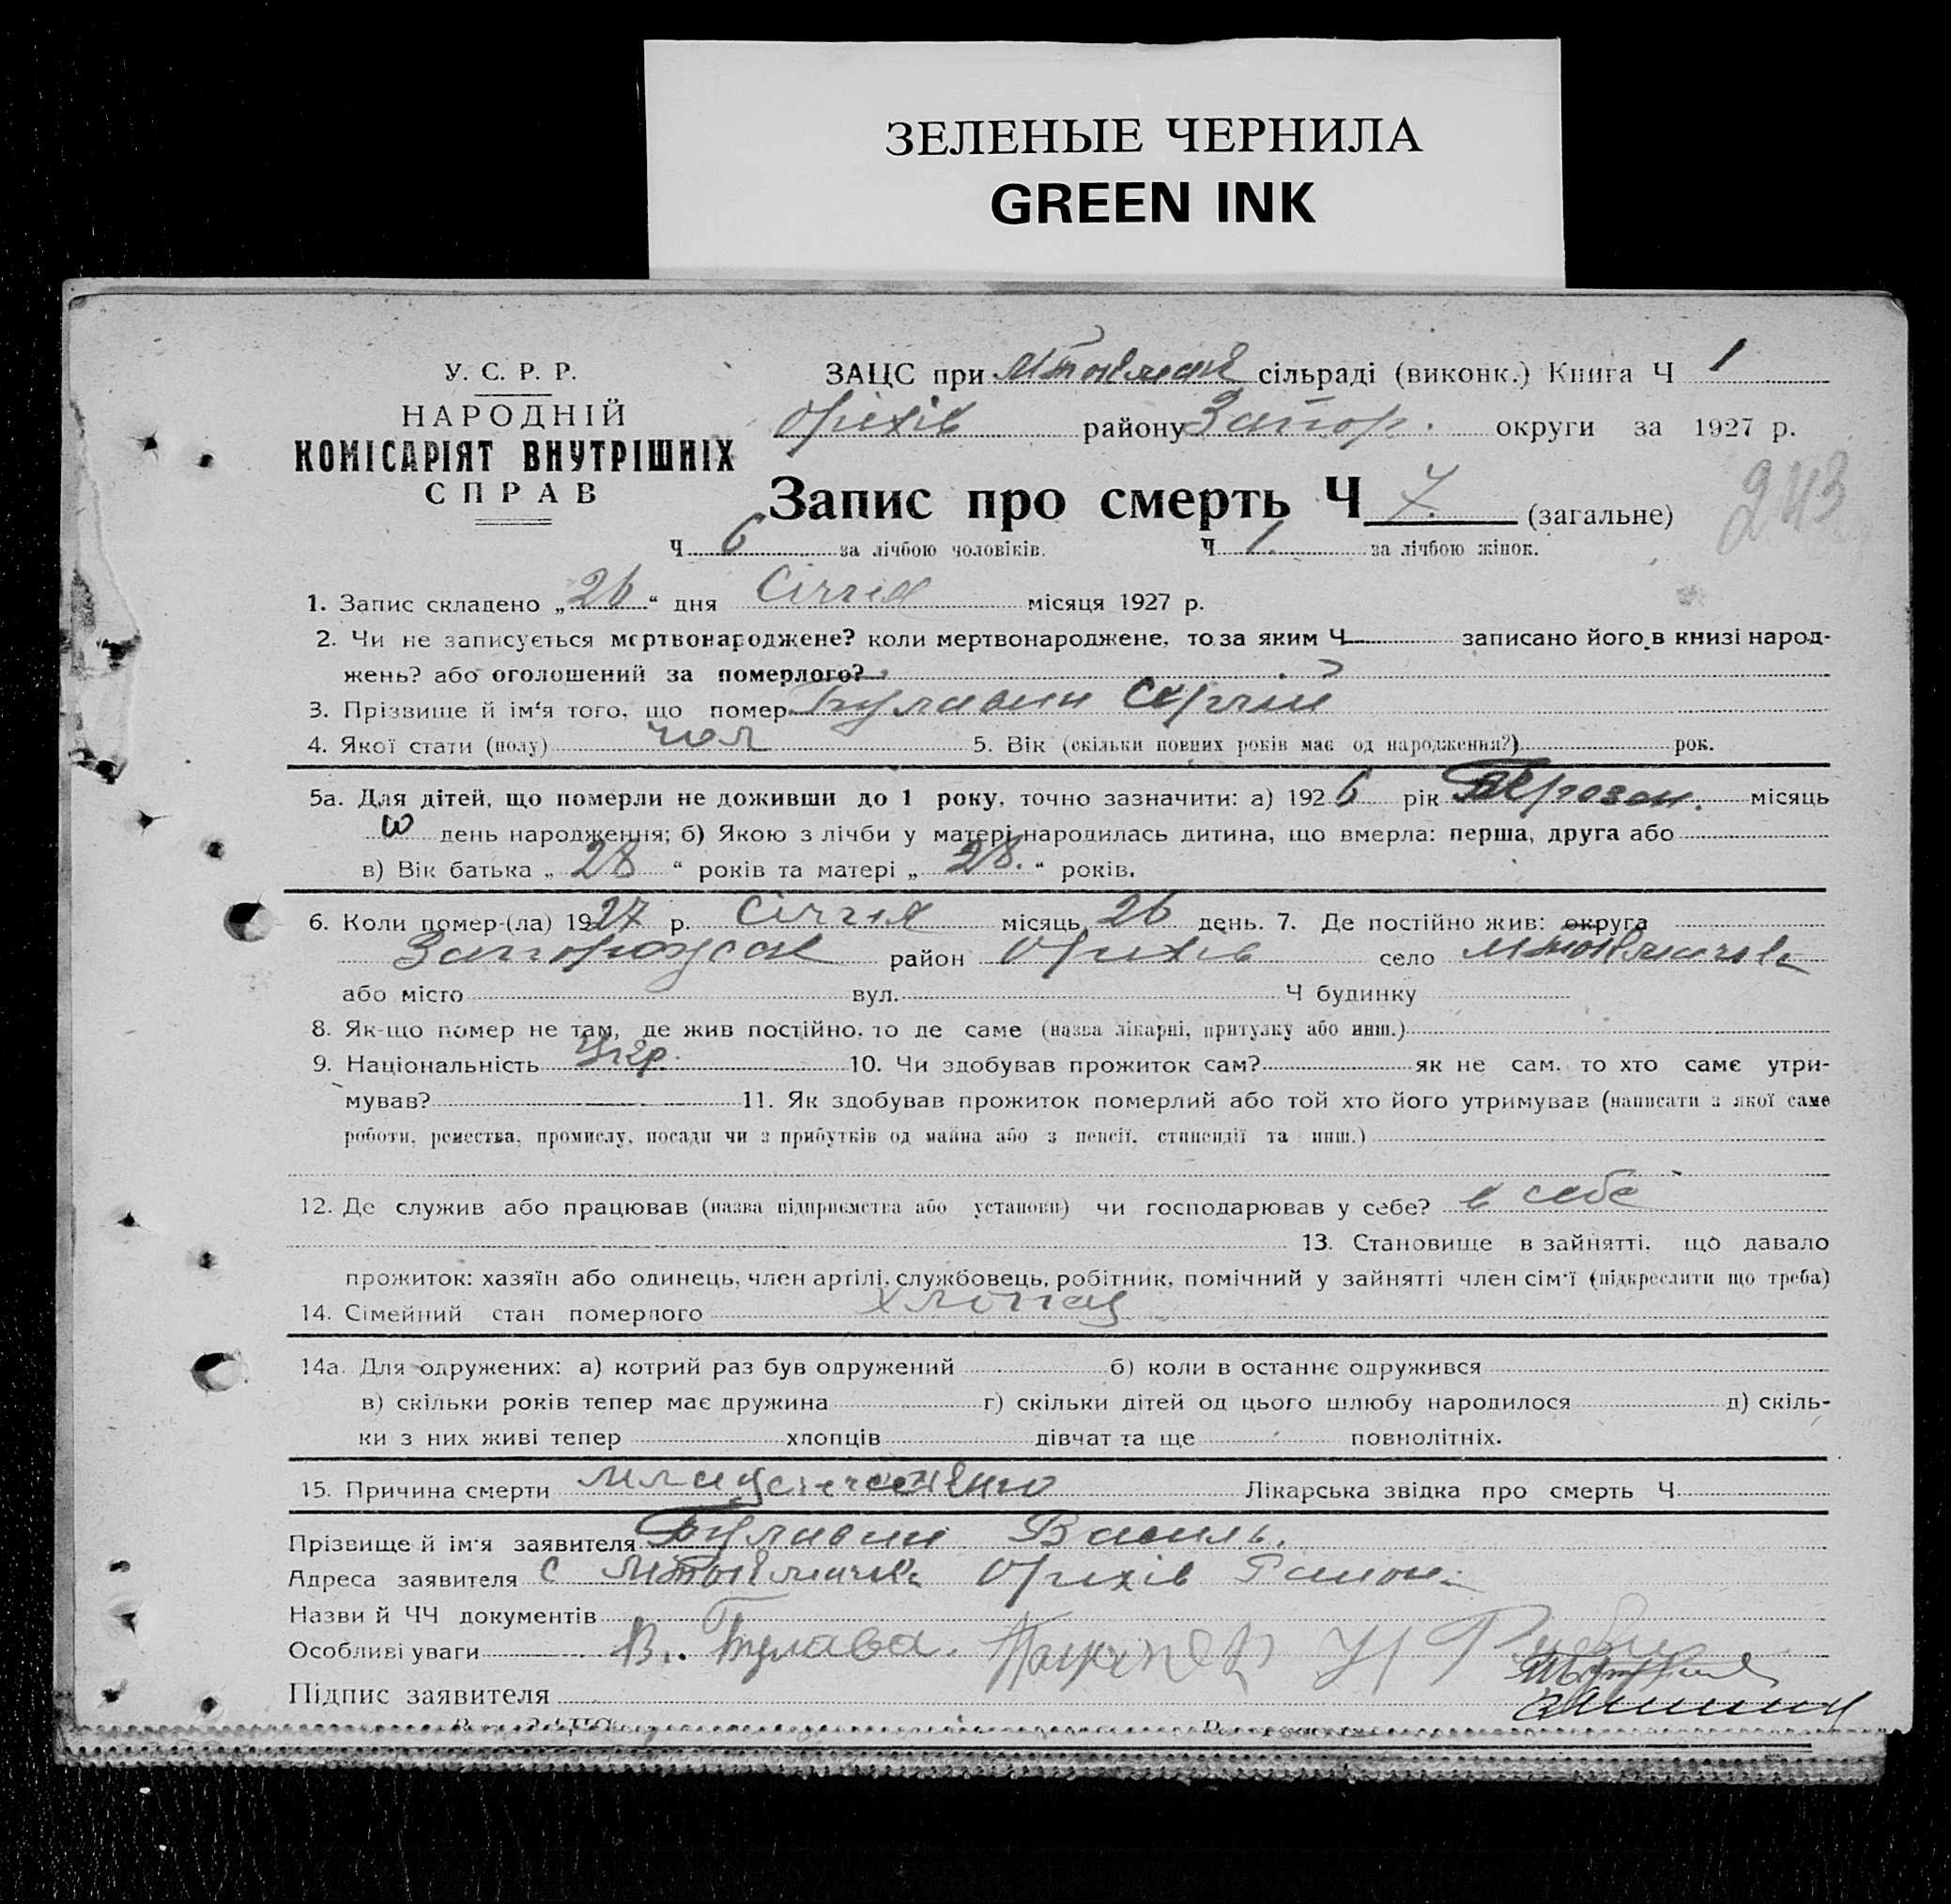 ЗЕЛЕНЫЕ ЧЕРНИЛА
GREEN INK
У. С. Р. Р.
НАРОДНІЙ
КОМІСАРІЯТ ВНУТРІШНІХ
СПРАВ
ЗАЦС при сільраді (виконк.) Книга Ч 1
Оріхів району Запор. округи за 1927 р.
Запис про смерть Ч 7. (загальне)
243
Ч 6 за лічбою чоловіків. Ч 1. за лічбою жінок.
1. Запис складено „26“ дня Січня місяця 1927 р.
2. Чи не записується мертвонароджене? коли мертвонароджене, то за яким Ч записано його в книзі народ-
жень? або оголошений за померлого?
3. Прізвище й ім'я того, що помер Сергій
4. Якої стати (полу) чол 5. Вік (скільки повних років має од народження?) рок.
5а. Для дітей, що померли не доживши до 1 року, точно зазначити: а) 1926 рік місяць
день народження; б) Якою з лічби у матері народилась дитина, що вмерла: перша, друга або
в) Вік батька „28“ років та матері „28.“ років.
6. Коли помер-(ла) 1927 р. Січня місяць 26 день. 7. Де постійно жив: округа
район Оріхів село
або місто вул. Ч будинку
8. Як-що помер не там, де жив постійно, то де саме (назва лікарні, притулку або инш.)
9. Національність Укр. 10. Чи здобував прожиток сам? як не сам, то хто саме утри-
мував? 11. Як здобував прожиток померлий або той хто його утримував (написати з якої саме
роботи, ремества, промислу, посади чи з прибутків од майна або з пенсії, стипендії та инш.)
12. Де служив або працював (назва підприємства або установи) чи господарював у себе? в себе
13. Становище в зайнятті, що давало
прожиток: хазяїн або одинець, член артілі, службовець, робітник, помічний у зайнятті член сім'ї (підкреслити що треба)
14. Сімейний стан померлого хлопець
14а. Для одружених: а) котрий раз був одружений б) коли в останнє одружився
в) скільки років тепер має дружина г) скільки дітей од цього шлюбу народилося д) скіль-
ки з них живі тепер хлопців дівчат та ще повнолітніх.
15. Причина смерти Лікарська звідка про смерть Ч
Прізвище й ім'я заявителя Василь.
Адреса заявителя с Оріхів Район
Назви й ЧЧ документів
Особливі уваги В. Булава.
Підпис заявителя